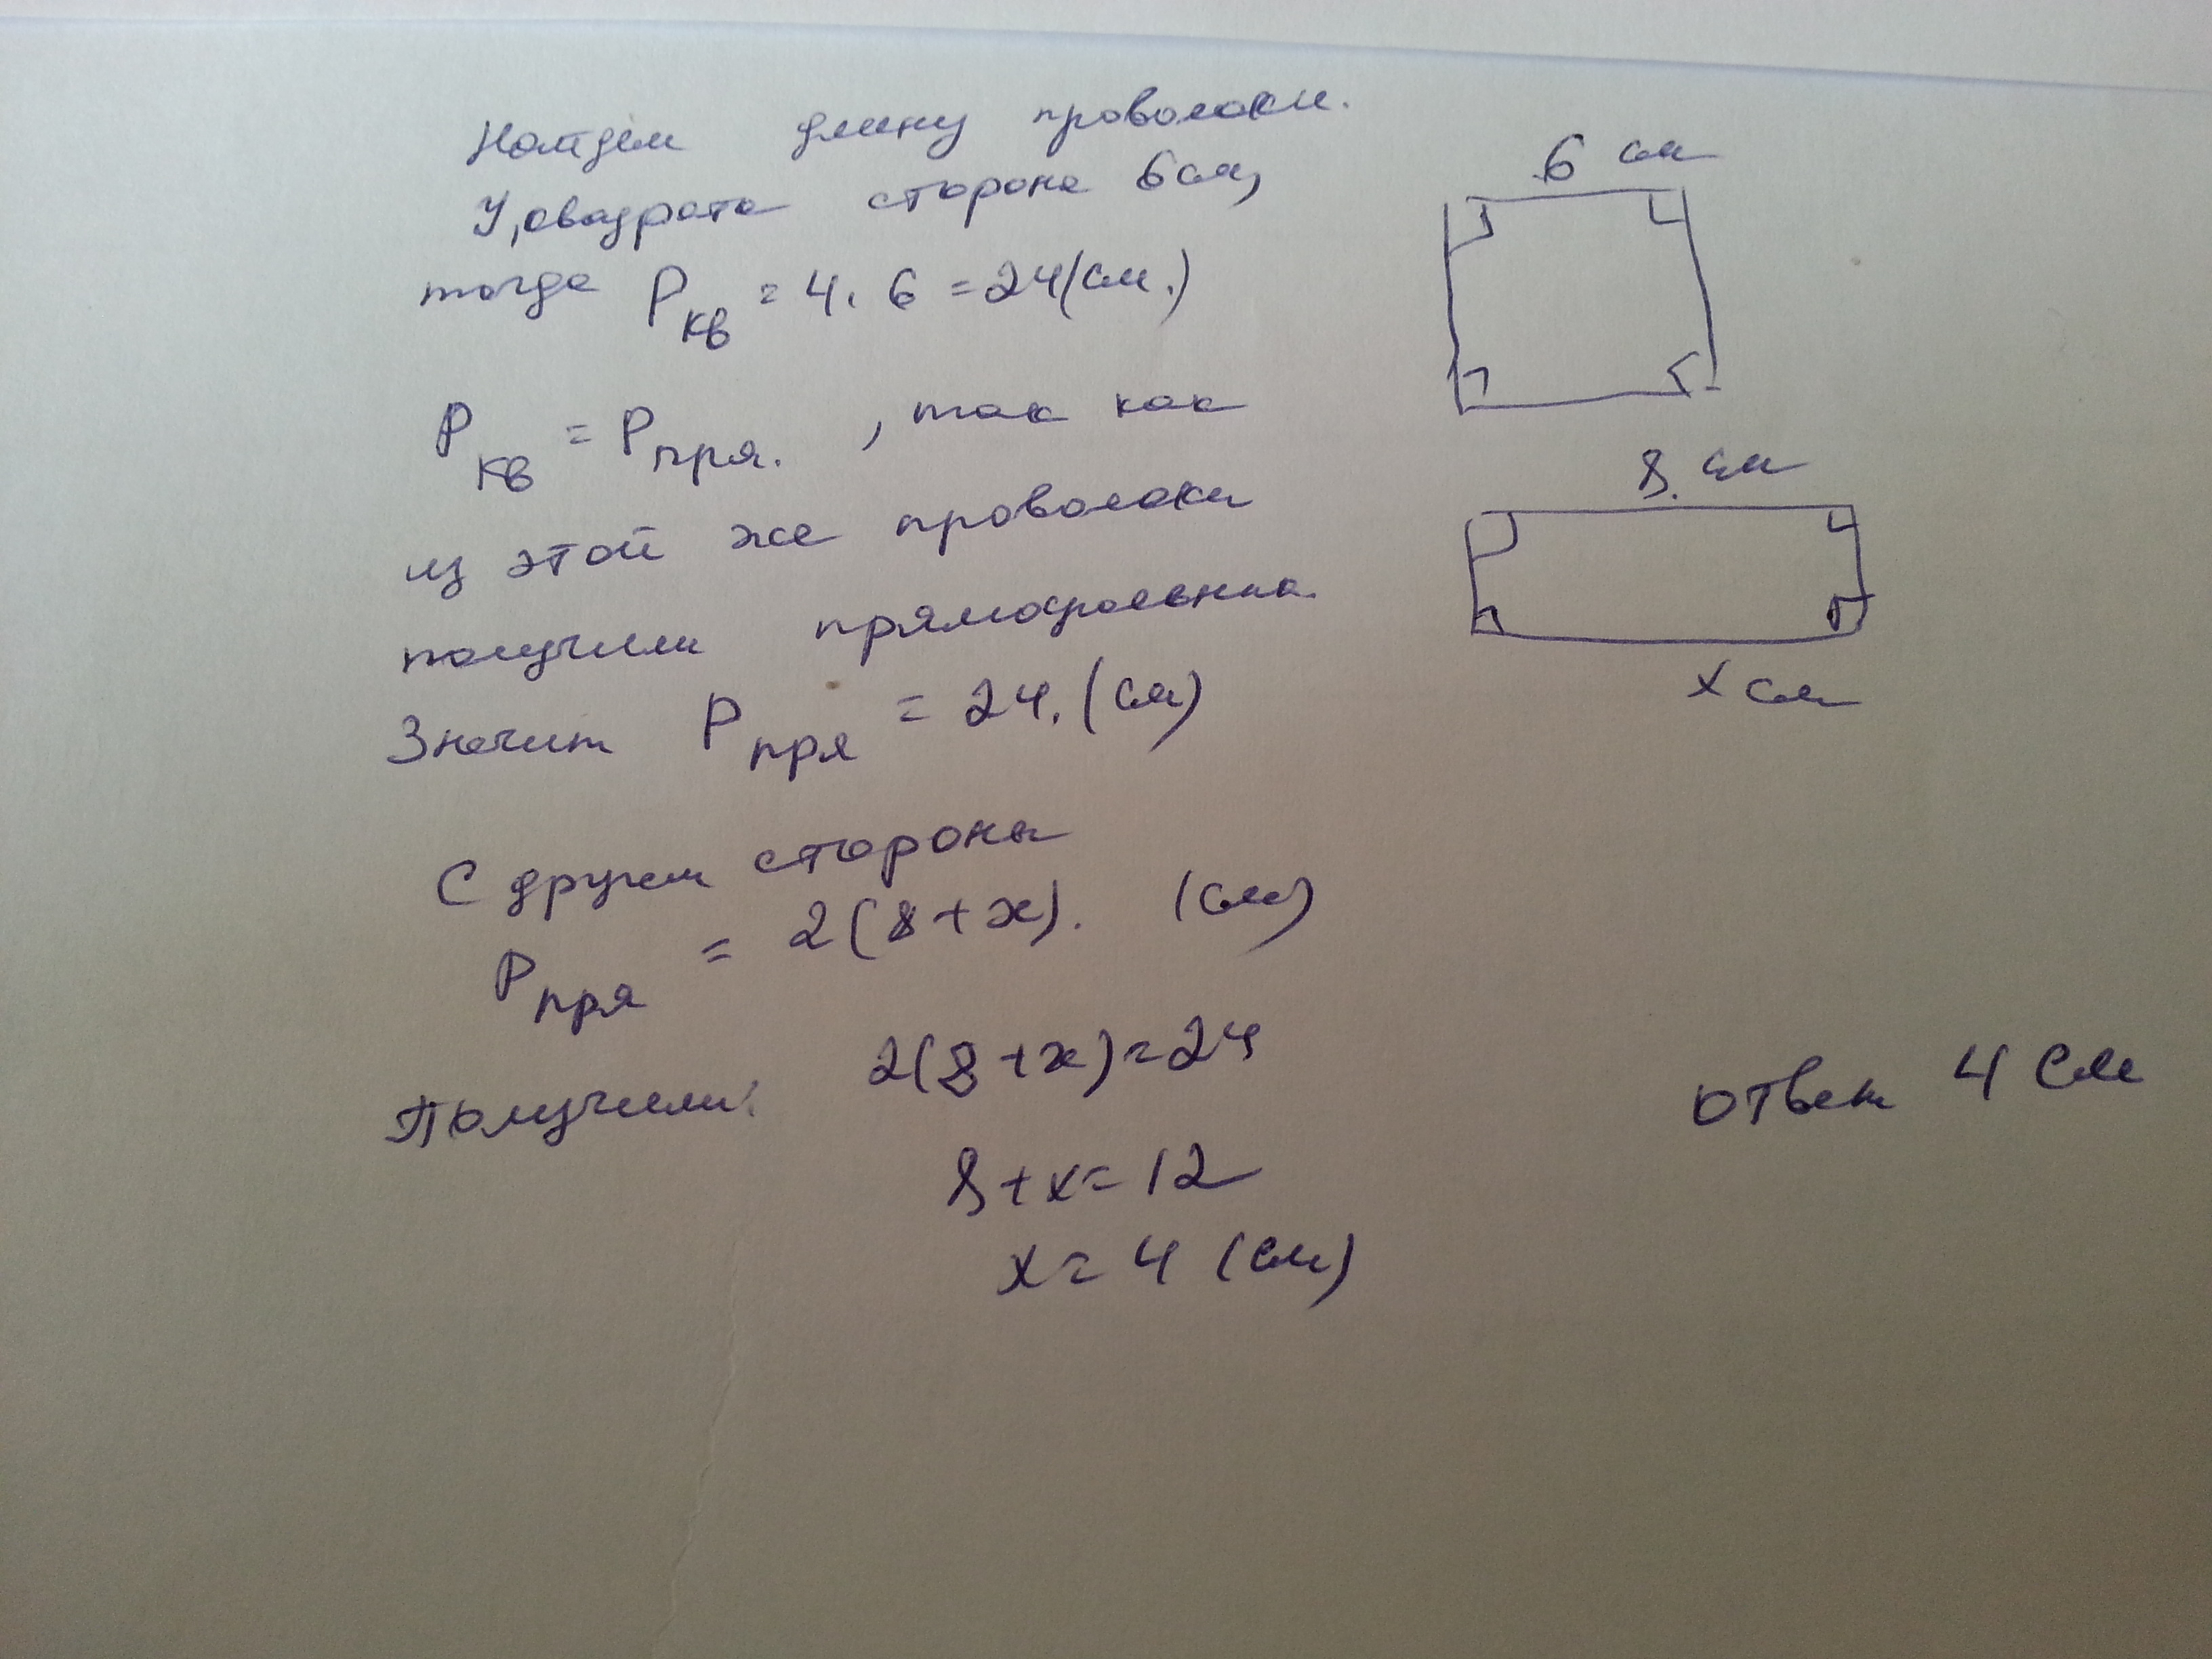 Найдём длину проволоки.
У квадрата сторона 6 см,
тогда Pкв = 4 · 6 = 24 (см.)
Pкв = Pпря. , так как
из этой же проволоки
получили прямоугольник.
Значит Pпря = 24. (см)
С другой стороны
Pпря = 2(8+x). (см)
Получили: 2(8+x)=24
8+x=12
x=4 (см)
6 см
8. см
x см
ответ 4 см